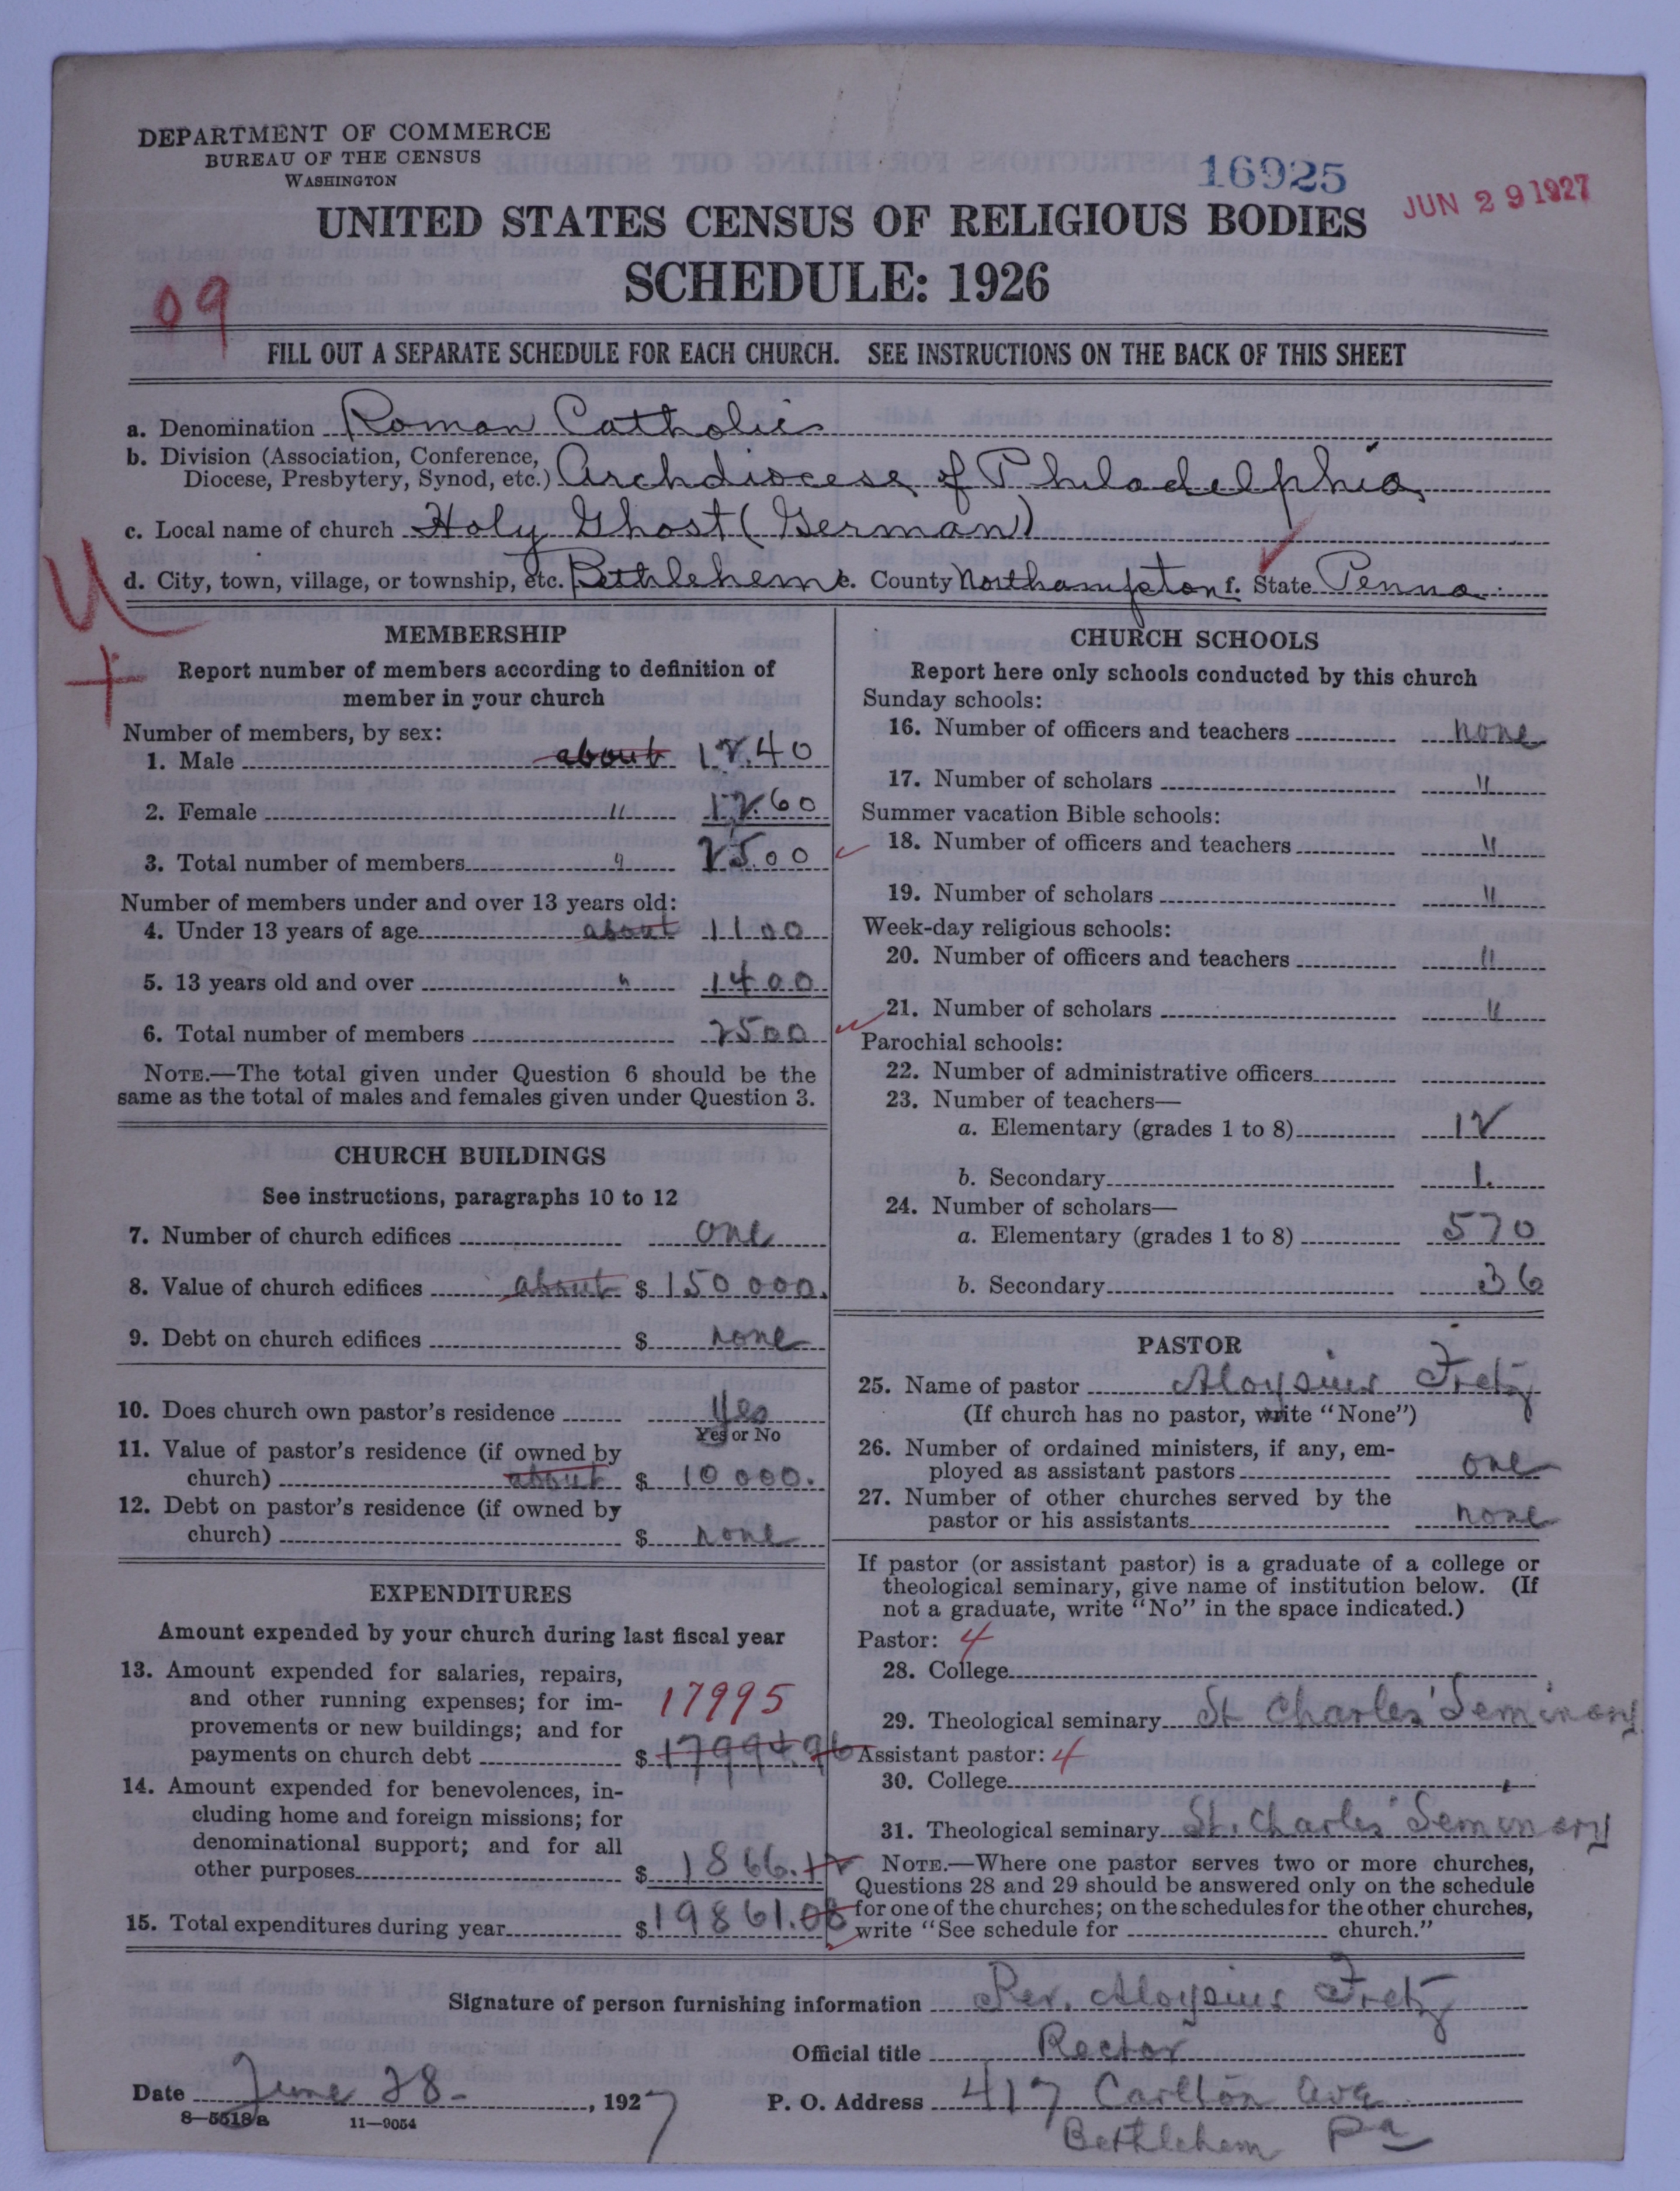 DEPARTMENT OF COMMERCE
BUREAU OF THE CENSUS
WASHINGTON
16925
JUN 29 1927
UNITED STATES CENSUS OF RELIGIOUS BODIES
SCHEDULE: 1926
09
FILL OUT A SEPARATE SCHEDULE FOR EACH CHURCH. SEE INSTRUCTIONS ON THE BACK OF THIS SHEET
a. Denomination Roman Catholic
b. Division (Association, Conference,
Diocese, Presbytery, Synod, etc.) Archdiocese of Philadelphia
c. Local name of church Holy Ghost (German)
d. City, town, village, or township, etc. Bethlehem e. County Northampton f. State Penna.
MEMBERSHIP
Report number of members according to definition of
member in your church
Number of members, by sex:
1. Male about 1240
2. Female " 1260
3. Total number of members " 2500
Number of members under and over 13 years old:
4. Under 13 years of age about 1100
5. 13 years old and over " 1400
6. Total number of members 2500
NOTE.—The total given under Question 6 should be the
same as the total of males and females given under Question 3.
CHURCH BUILDINGS
See instructions, paragraphs 10 to 12
7. Number of church edifices one
8. Value of church edifices about $ 150 000.
9. Debt on church edifices $ none
10. Does church own pastor's residence Yes
Yes or No
11. Value of pastor's residence (if owned by
church) about $ 10 000.
12. Debt on pastor's residence (if owned by
church) $ none
EXPENDITURES
Amount expended by your church during last fiscal year
13. Amount expended for salaries, repairs,
and other running expenses; for im-
17995
provements or new buildings; and for
payments on church debt $ 17994.96
14. Amount expended for benevolences, in-
cluding home and foreign missions; for
denominational support; and for all
other purposes $ 1866.12
15. Total expenditures during year $ 19861.08
CHURCH SCHOOLS
Report here only schools conducted by this church
Sunday schools:
16. Number of officers and teachers none
17. Number of scholars "
Summer vacation Bible schools:
18. Number of officers and teachers "
19. Number of scholars "
Week-day religious schools:
20. Number of officers and teachers "
21. Number of scholars "
Parochial schools:
22. Number of administrative officers
23. Number of teachers—
a. Elementary (grades 1 to 8) 12
b. Secondary 1.
24. Number of scholars—
a. Elementary (grades 1 to 8) 570
b. Secondary 36
PASTOR
25. Name of pastor Aloysius Fretz
(If church has no pastor, write "None")
26. Number of ordained ministers, if any, em-
ployed as assistant pastors one
27. Number of other churches served by the
pastor or his assistants none
If pastor (or assistant pastor) is a graduate of a college or
theological seminary, give name of institution below. (If
not a graduate, write "No" in the space indicated.)
Pastor: 4
28. College
29. Theological seminary St Charles' Seminary
Assistant pastor: 4
30. College
31. Theological seminary St. Charles' Seminary
NOTE.—Where one pastor serves two or more churches,
Questions 28 and 29 should be answered only on the schedule
for one of the churches; on the schedules for the other churches,
write "See schedule for church."
Signature of person furnishing information Rev. Aloysius Fretz
Official title Rector
Date June 28-, 1927
P. O. Address 417 Carlton Ave
Bethlehem Pa
8—5518a 11—9054